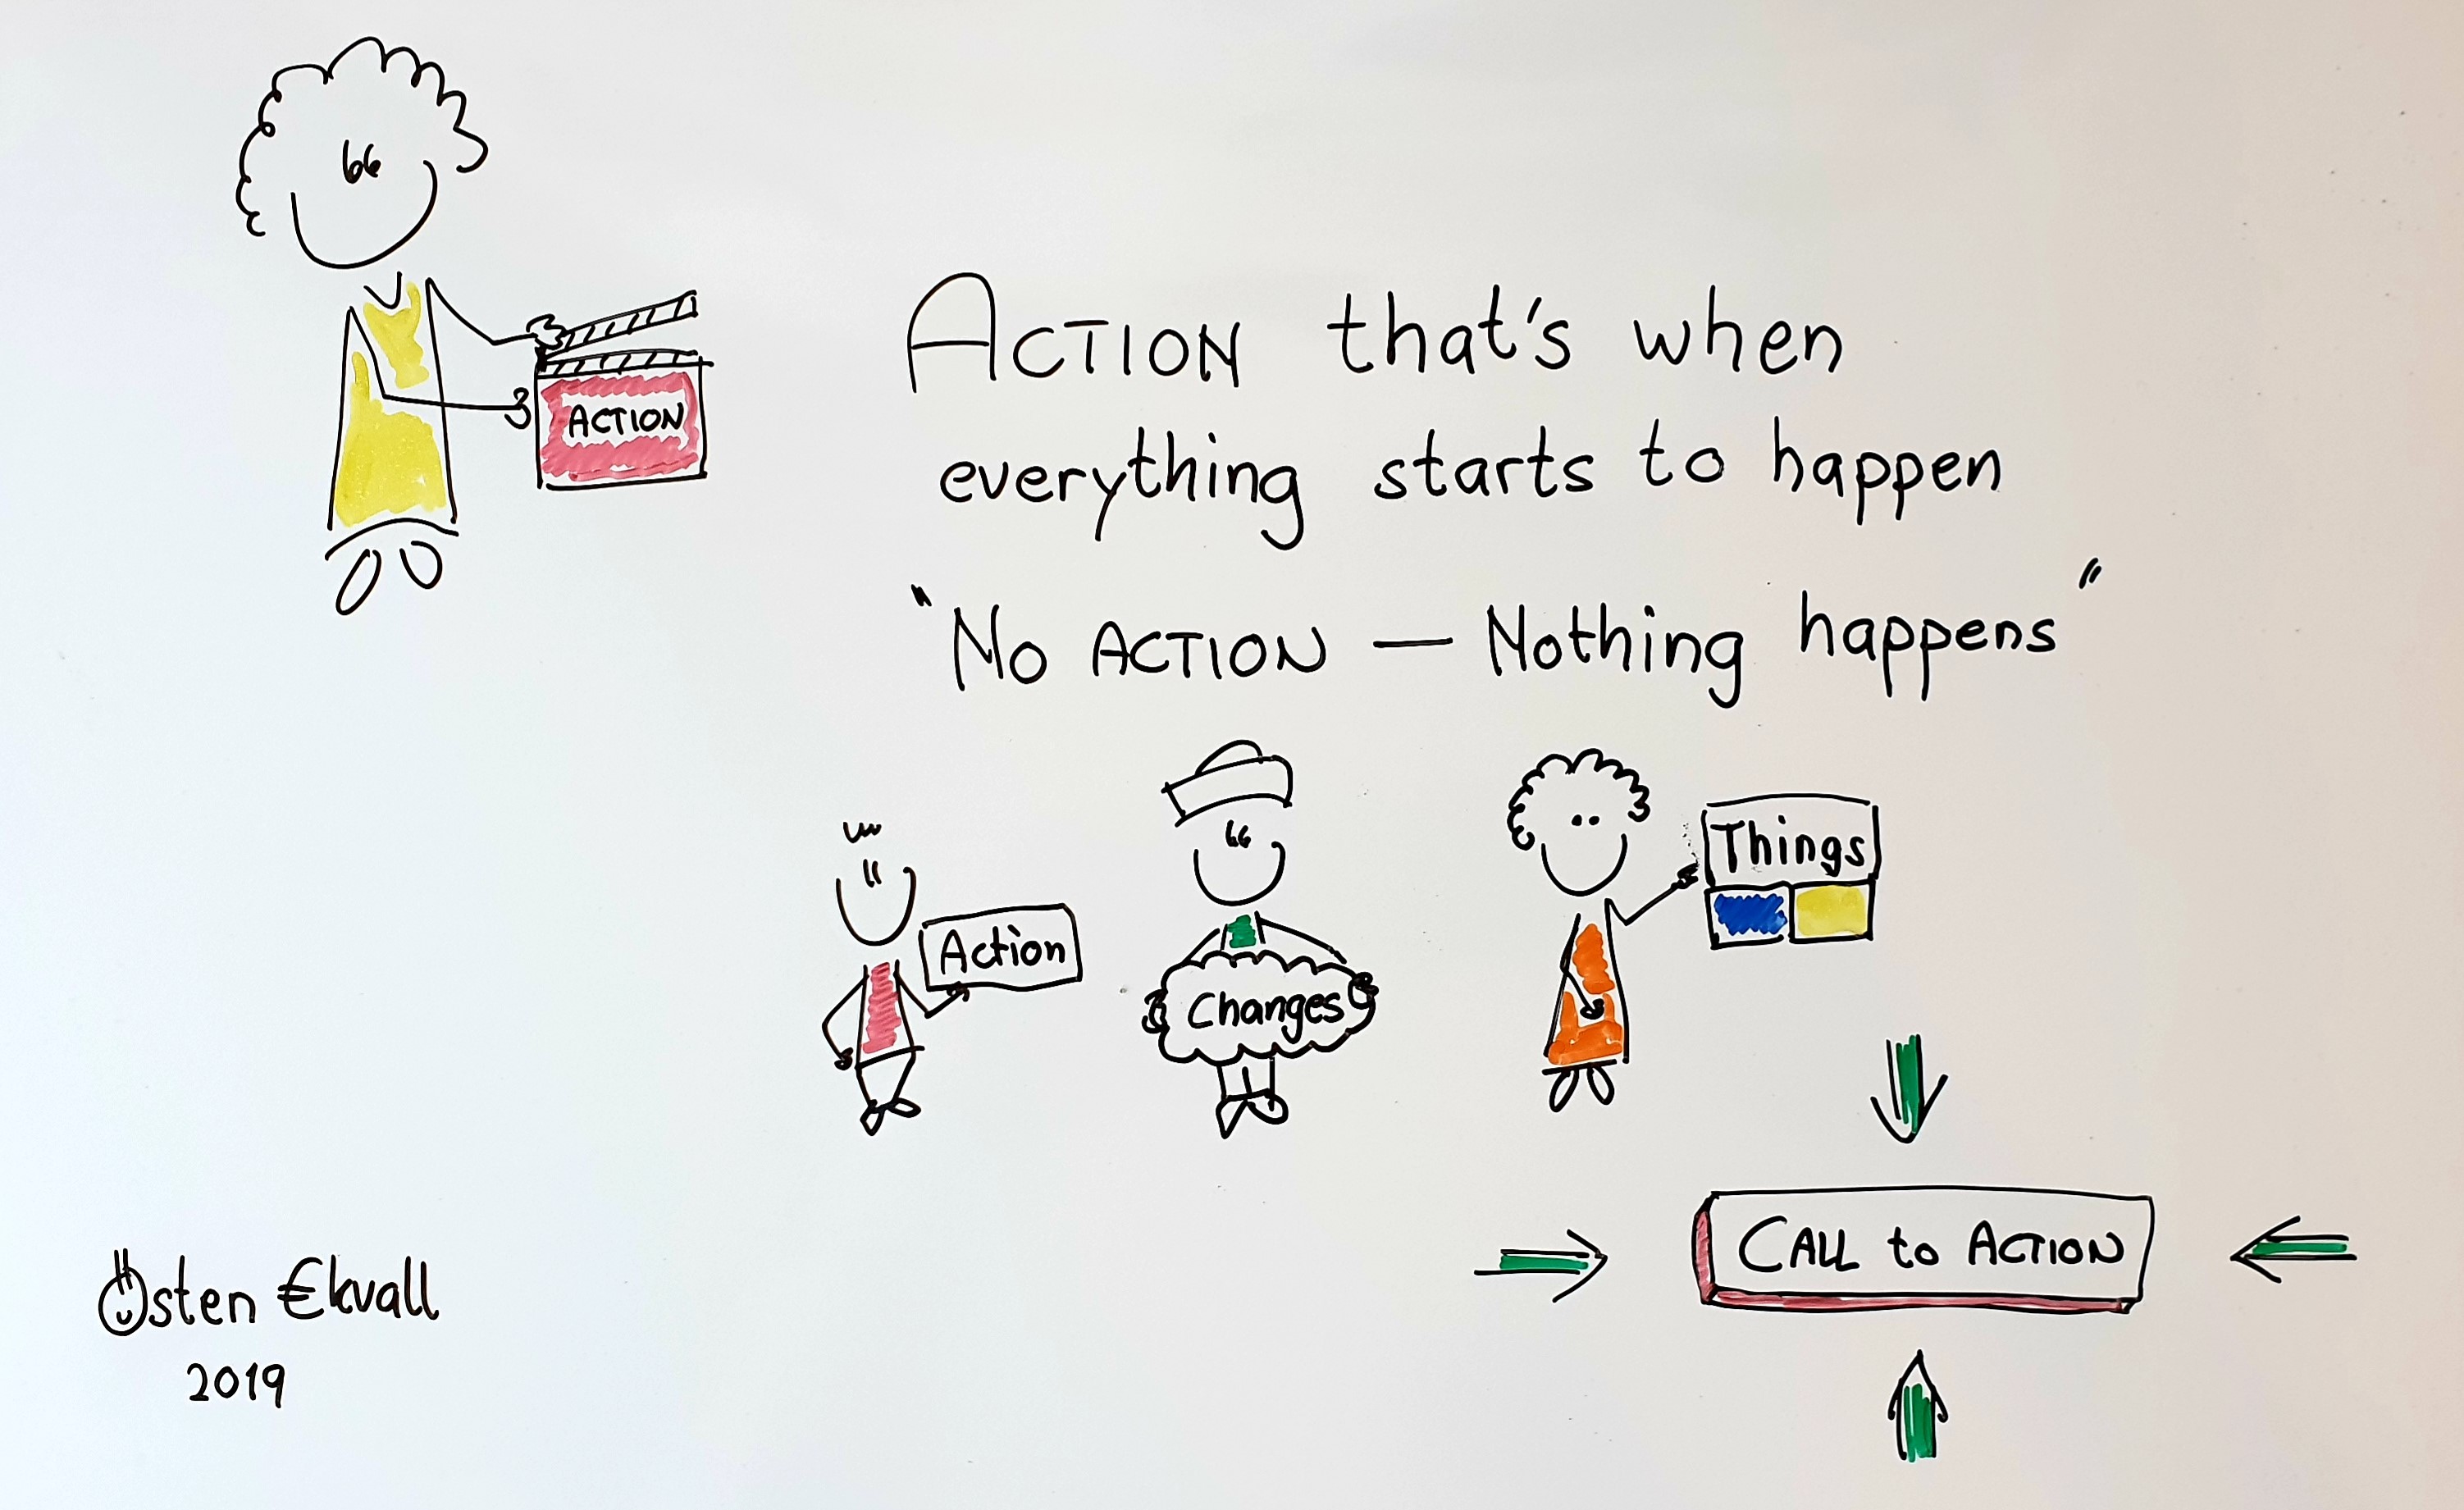 ACTION
ACTION that's when
everything starts to happen
"No ACTION — Nothing happens"
Action
Changes
Things
CALL to ACTION
Östen €kvall
2019